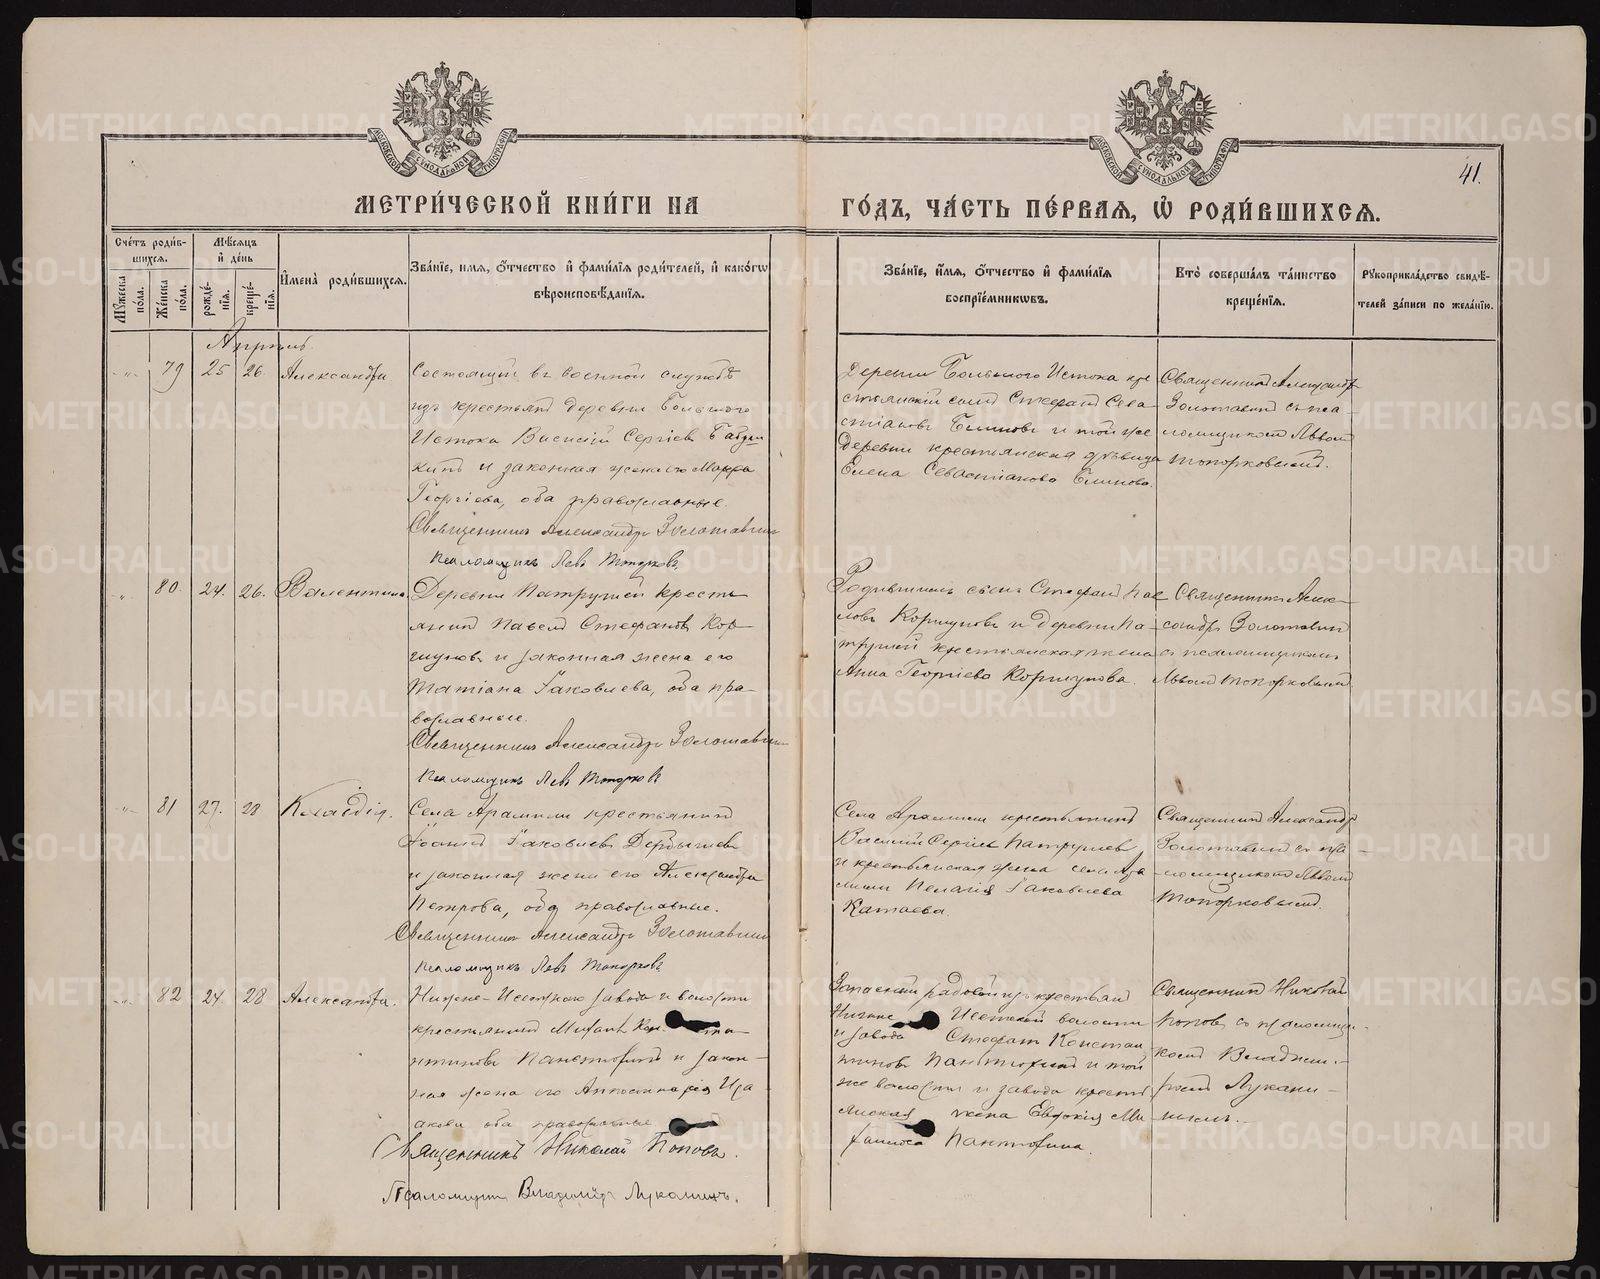 МОСКОВСКОЙ СѴНОДАЛЬНОЙ ТИПОГРАФІИ
МОСКОВСКОЙ СѴНОДАЛЬНОЙ ТИПОГРАФІИ
41.
МЕТРИ́ЧЕСКОЙ КНИ́ГИ НА
ГО́ДЪ, ЧА́СТЬ ПЕ́РВАЯ, Ѽ РОДИ́ВШИХСѦ.
Сче́тъ роди́в-
шихсѧ.
Мꙋ́жеска по́ла.
Же́нска по́ла.
Мѣ́сѧцъ
и҆ де́нь
рожде́-
нїѧ.
креще́-
нїѧ.
И҆мена̀ роди́вшихсѧ.
Зва́нїе, и҆мѧ, о҆́тчество и҆ фами́лїѧ роди́телей, и҆ како́гѡ
вѣроисповѣ́данїѧ.
Зва́нїе, и҆́мѧ, о҆́тчество и҆ фами́лїѧ
воспрїе́мникѡвъ.
Кто̀ соверша́лъ та́инство
креще́нїѧ.
Рꙋкоприкла́дство свидѣ́-
телей за́писи по жела́нїю.
Апрѣль
79 25 26. Александра
Состоящій въ военной службѣ
изъ крестьянъ деревни Большого
Истока Василій Сергіевъ
и законная жена его Марѳа
Георгіева, оба православные.
Священникъ Александръ Золотавинъ
Псаломщикъ Левъ Топорковъ.
Деревни Большого Истока кре
стьянскій сынъ Стефанъ Сева-
стіановъ Блиновъ и той же
деревни крестьянская дѣвица
Елена Севастіанова Блинова.
Священникъ Александръ
Золотавинъ съ пса-
ломщикомъ Львомъ
Топорковымъ.
80. 24. 26. Валентина.
Деревни Патрушей кресть-
янинъ Павелъ Стефановъ Кор-
шуновъ и законная жена его
Татіана Іаковлева, оба пра-
вославные.
Священникъ Александръ Золотавинъ
Псаломщикъ Левъ Топорковъ
Стефанъ Пав
ловъ Коршуновъ и деревни Па-
трушей крестьянская жена
Анна Георгіева Коршунова.
Священникъ Алек-
сандръ Золотавинъ
съ псаломщикомъ
Львомъ Топорковымъ
81 27. 28 Клавдія.
Села Арамили крестьянинъ
Іоаннъ Іаковлевъ Дербышевъ
и законная жена его Александра
Петрова, оба православные.
Священникъ Александръ Золотавинъ
Псаломщикъ Левъ Топорковъ
Села Арамили крестьянинъ
Василій Сергіевъ Патрушевъ
и крестьянская жена села Ара
мили Пелагія Іаковлева
Катаева.
Священникъ Александръ
Золотавинъ съ пса-
ломщикомъ Львомъ
Топорковымъ.
82 24. 28 Александра.
Нижне-Исетскаго завода и волости
крестьянинъ Михаилъ Конста
нтиновъ Пантюхинъ и закон-
ная жена его Иса
акова оба православные
Священникъ Николай Поповъ.
Псаломщикъ Владиміръ Луканинъ.
Запасный рядовой изъ крестьянъ
Нижне Исетской волости
и завода Стефанъ Констан
тиновъ Пантюхинъ и той
же волости и завода кресть
янская жена Евдокія Ми
хаилова Пантюхина.
Священникъ Николай
Поповъ съ псаломщи-
комъ Владими-
ромъ Лукани-
нымъ.
METRIKI.GASO-URAL.RU